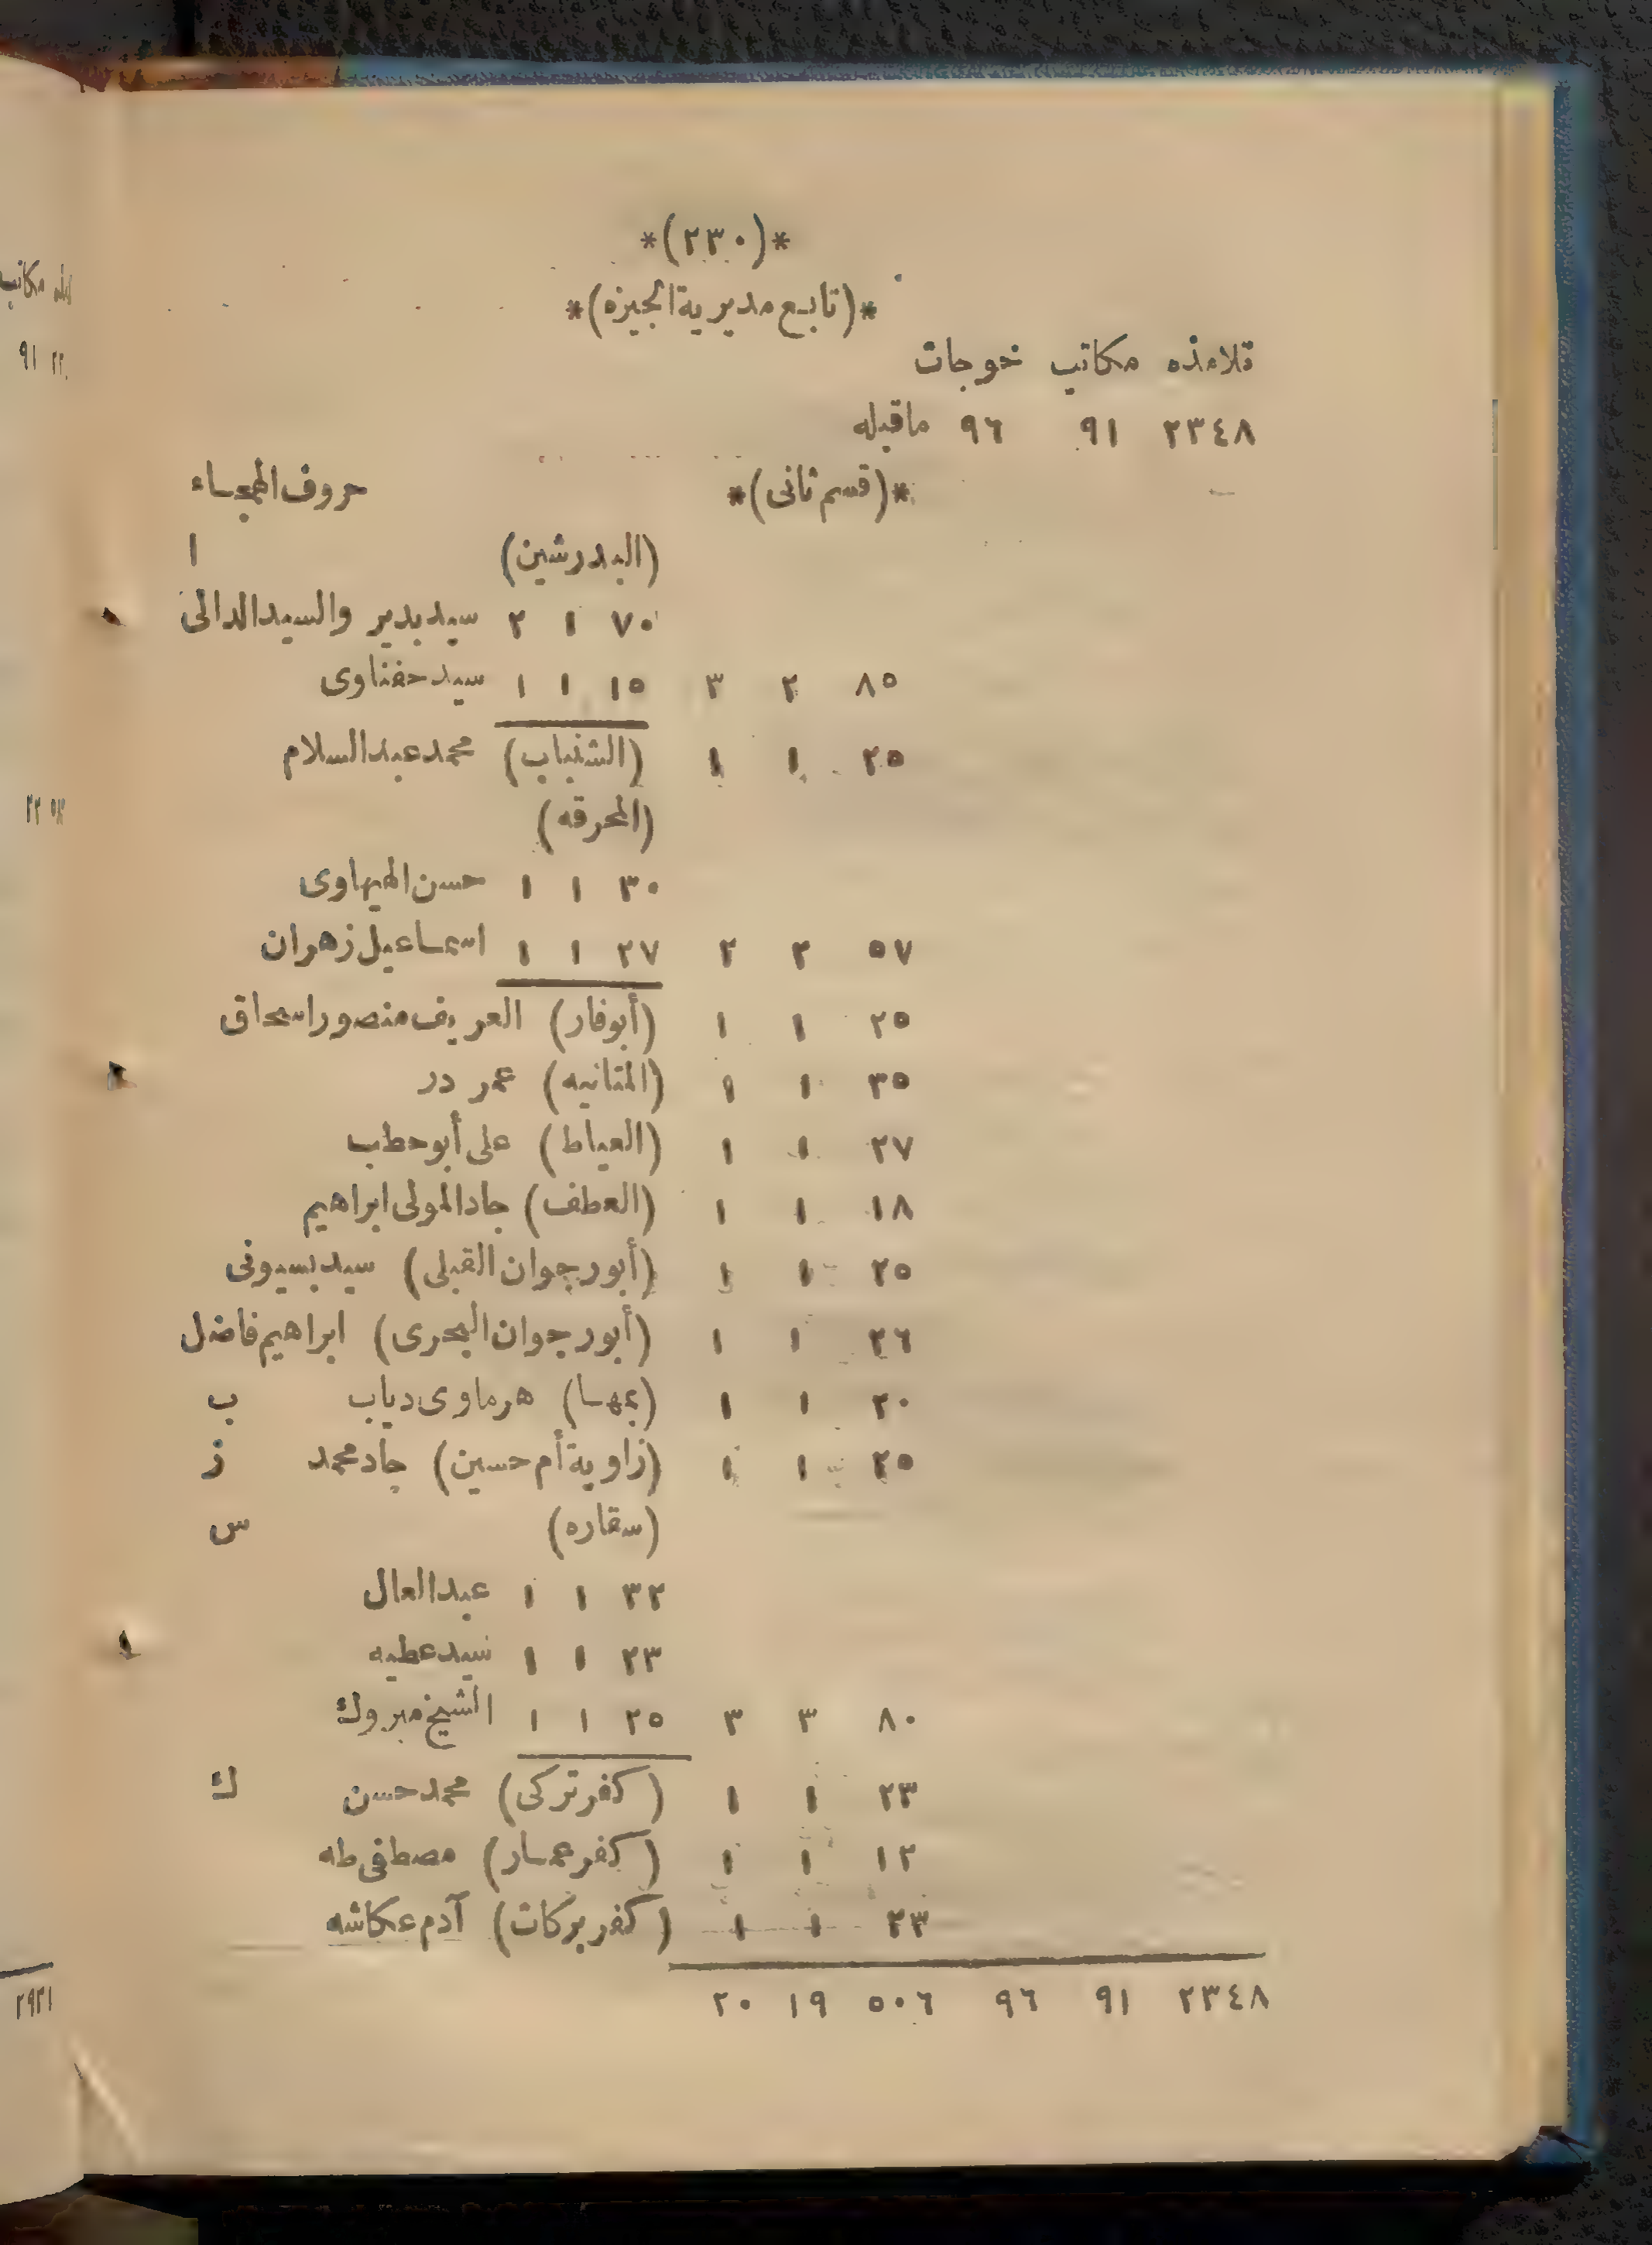 *(٢٣٠)*
*(تابع مديرية الجيزه)*
تلامذه مكاتب خوجات
٢٣٤٨ ٩١ ٩٦ ماقبله
*(قسم ثانى)* حروف الهجاء
(البدرشين) ا
٧٠ ١ ٢ سيد بدير والسيد الدالى
٨٥ ٢ ٣ ١٥ ١ ١ سيد حفناوى
٢٥ ١ ١ (الشنباب) محمد عبد السلام
(المحرقه)
٣٠ ١ ١ حسن الهيهاوى
٥٧ ٢ ٢ ٢٧ ١ ١ اسماعيل زهران
٢٥ ١ ١ (أبوفار) العريف منصور اسحاق
٣٥ ١ ١ (المتانيه) عمر در
٢٧ ١ ١ (العياط) على أبو حطب
١٨ ١ ١ (العطف) جاد المولى ابراهيم
٢٥ ١ ١ (أبورجوان القبلى) سيد بسيونى
٢٦ ١ ١ (أبورجوان البحرى) ابراهيم فاضل
٢٠ ١ ١ (بمها) هرماوى دياب ب
٢٥ ١ ١ (زاوية أم حسين) جاد محمد ز
(سقاره) س
٣٢ ١ ١ عبد العال
٢٣ ١ ١ سيد عطيه
٨٠ ٣ ٣ ٢٥ ١ ١ الشيخ مبروك
٢٣ ١ ١ (كفر تركى) محمد حسن ك
١٢ ١ ١ (كفر عمار) مصطفى طه
٢٣ ١ ١ (كفر بركات) آدم عكاشه
٢٣٤٨ ٩١ ٩٦ ٥٠٦ ١٩ ٢٠